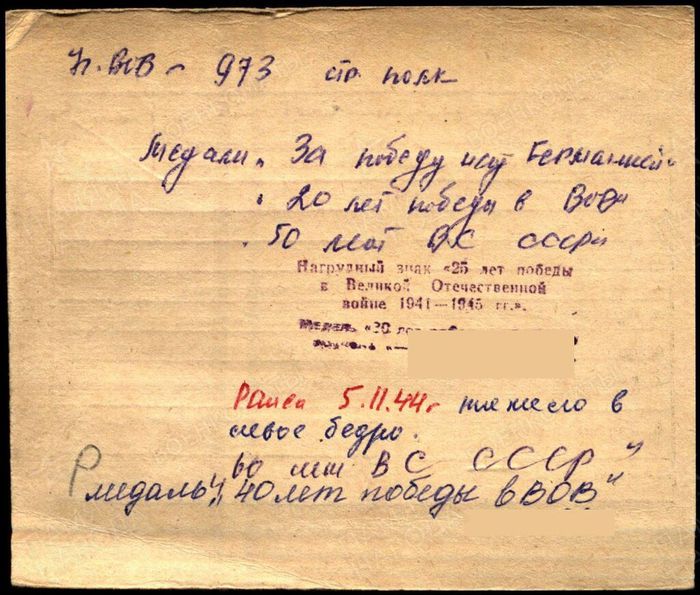 973 стр. полк
Медали „За победу над Германией"
„20 лет победы в ВОВ"
„50 лет ВС СССР"
Нагрудный знак «25 лет победы
в Великой Отечественной
войне 1941—1945 гг.».
Медаль «30 лет
Ранен 5.11.44г тяжело в
левое бедро.
60 лет ВС СССР"
Р
медаль „40 лет победы в ВОВ"